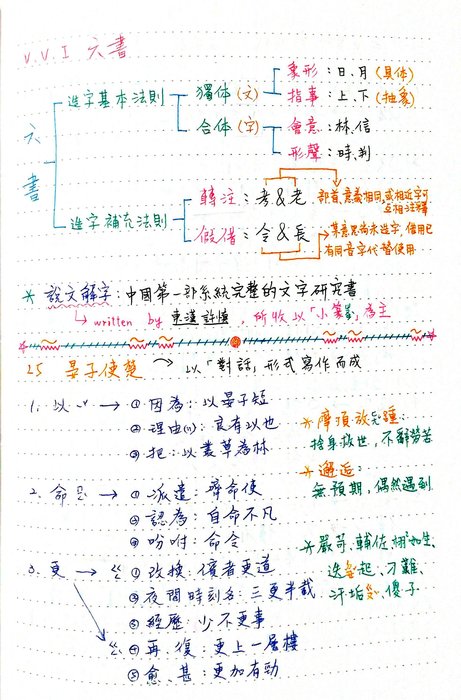 V.V.I 六書
六書
造字基本法則
獨体(文)
象形:日、月(具体)
指事:上、下(抽象)
合体(字)
會意:林、信
形聲:時、判
造字補充法則
轉注:考&老
部首、意義相同,或相近字可互相注釋
假借:令&長
某意思尚未造字,借用已有同音字代替使用
* 說文解字:中國第一部系統完整的文字研究書
↳ written by 東漢許慎,所收以「小篆」為主
L5 晏子使楚 → 以「對話」形式寫作而成
1. 以 ㄧˇ → ① 因為:以晏子短
② 理由(n):良有以也
③ 把:以叢草為林
* 摩頂放踵:
捨身救世,不辭勞苦
* 邂逅:
無預期,偶然遇到
2. 命 → ① 派遣:齊命使
② 認為:自命不凡
③ 吩咐:命令
* 嚴苛、輔佐、栩栩如生、
迭起、刁難、
汗垢、傻子
3. 更 → ㄍㄥ ① 改換:儐者更道
② 夜間時刻名:三更半載
③ 經歷:少不更事
ㄍㄥˋ ④ 再、復:更上一層樓
⑤ 愈、甚:更加有勁